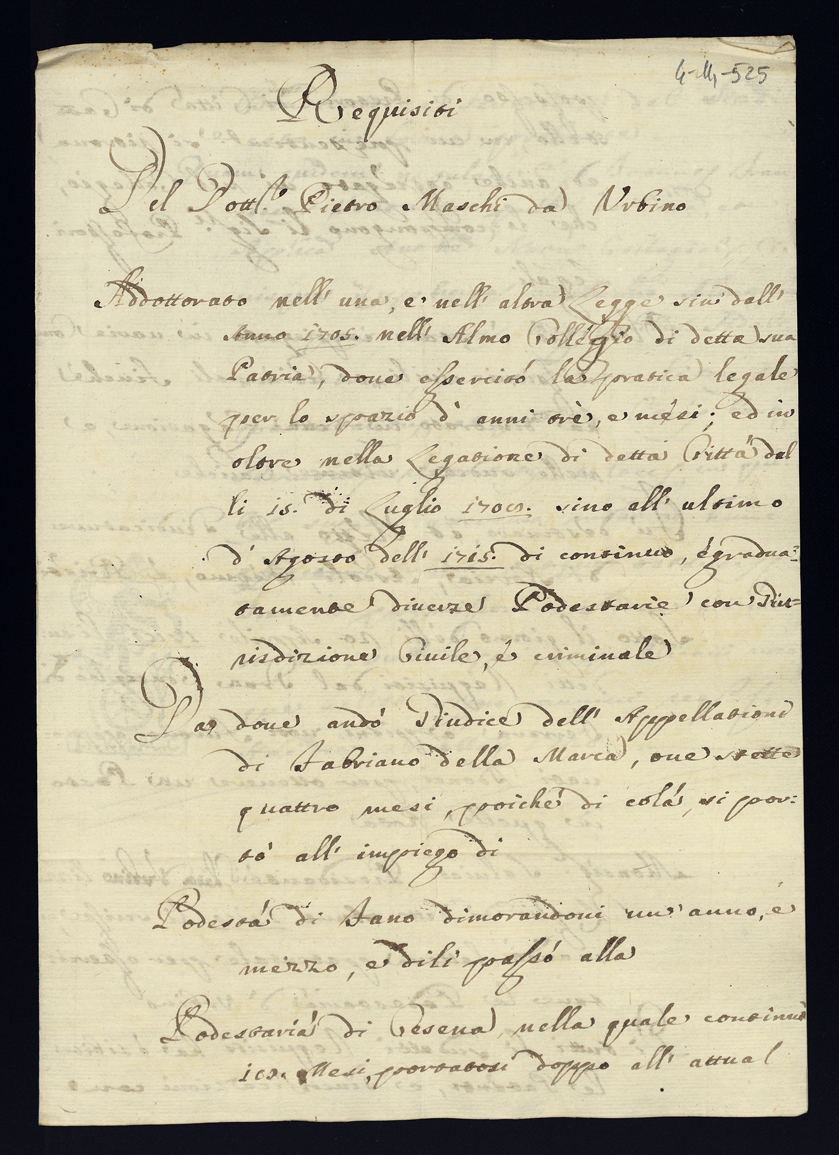 4-M-525
Requisiti
Del Dott.r Pietro Maschi da Urbino
Addottorato nell' una, e nell' altra Legge sin dall'
Anno 1705. nell' Almo Collegio di detta sua
Patria, doue essercitó la pratica legale
per lo spazio d' anni trè, e mesi; ed in
oltre nella Legatione di detta Città dal
li 15. di Luglio sino all' ultimo
d' Agosto dell' 1715. di continuo, é gradua=
tamente diuerse Podestarie con Giu=
risdizione Ciuile, é criminale
Da doue andó Giudice dell' Appellationi
di Fabriano della Marca, oue stette
quattro mesi, poiché di colá, si por=
tó all' impiego di
Podestá di Fano dimorandoui un' anno, é
mezzo, e di li passó alla
Podestaria di Cesena, nella quale continuò
Mesi, portatosi doppo all' attual